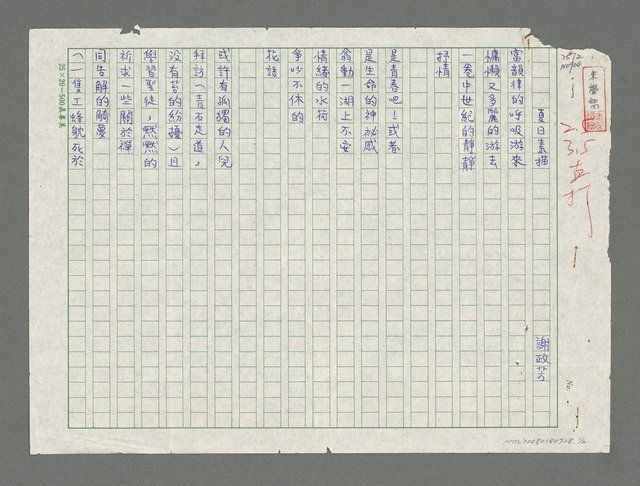 夏日素描
謝政芳
當韻律的呼吸游來
慵懶又多麗的游去
一卷中世紀的靜靜
抒情
是青春吧！或者
是生命的神祕感
翕動一湖上不安
情緒的水荷
爭吵不休的
花語
或許有孤獨的人兒
拜訪（青石走道，
沒有苔的紛擾）且
學習聖徒，默默的
祈求一些關於禪
同告解的觭夢
（一隻工蜂躭死於
25×20=500
直打
No.
NMTL20080180728. 1/2